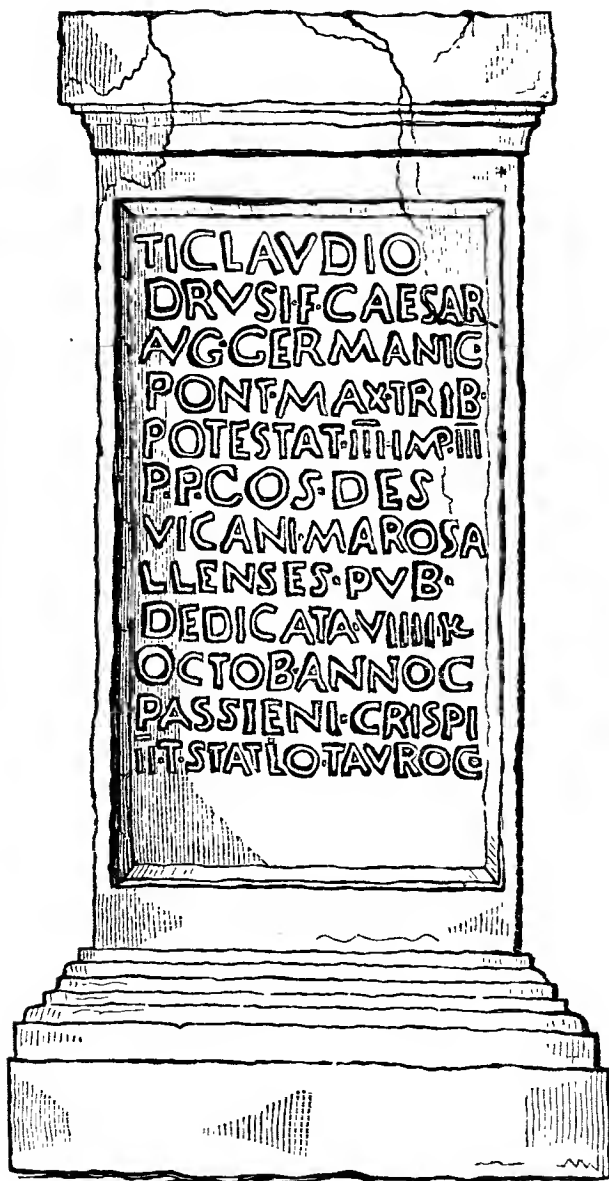 TI CLAVDIO
DRVSI·F·CAESAR
AVG·GERMANIC
PONT·MAX·TRIB·
POTESTAT·I̅I̅I̅·IMP·I̅I̅I̅
P·P·COS·DES
VICANI·MAROSA
LLENSES·PVB·
DEDICATA·VIIII·K
OCTOB·ANNO C
PASSIENI·CRISPI
I̅I̅·T·STATILO·TAVRO C·